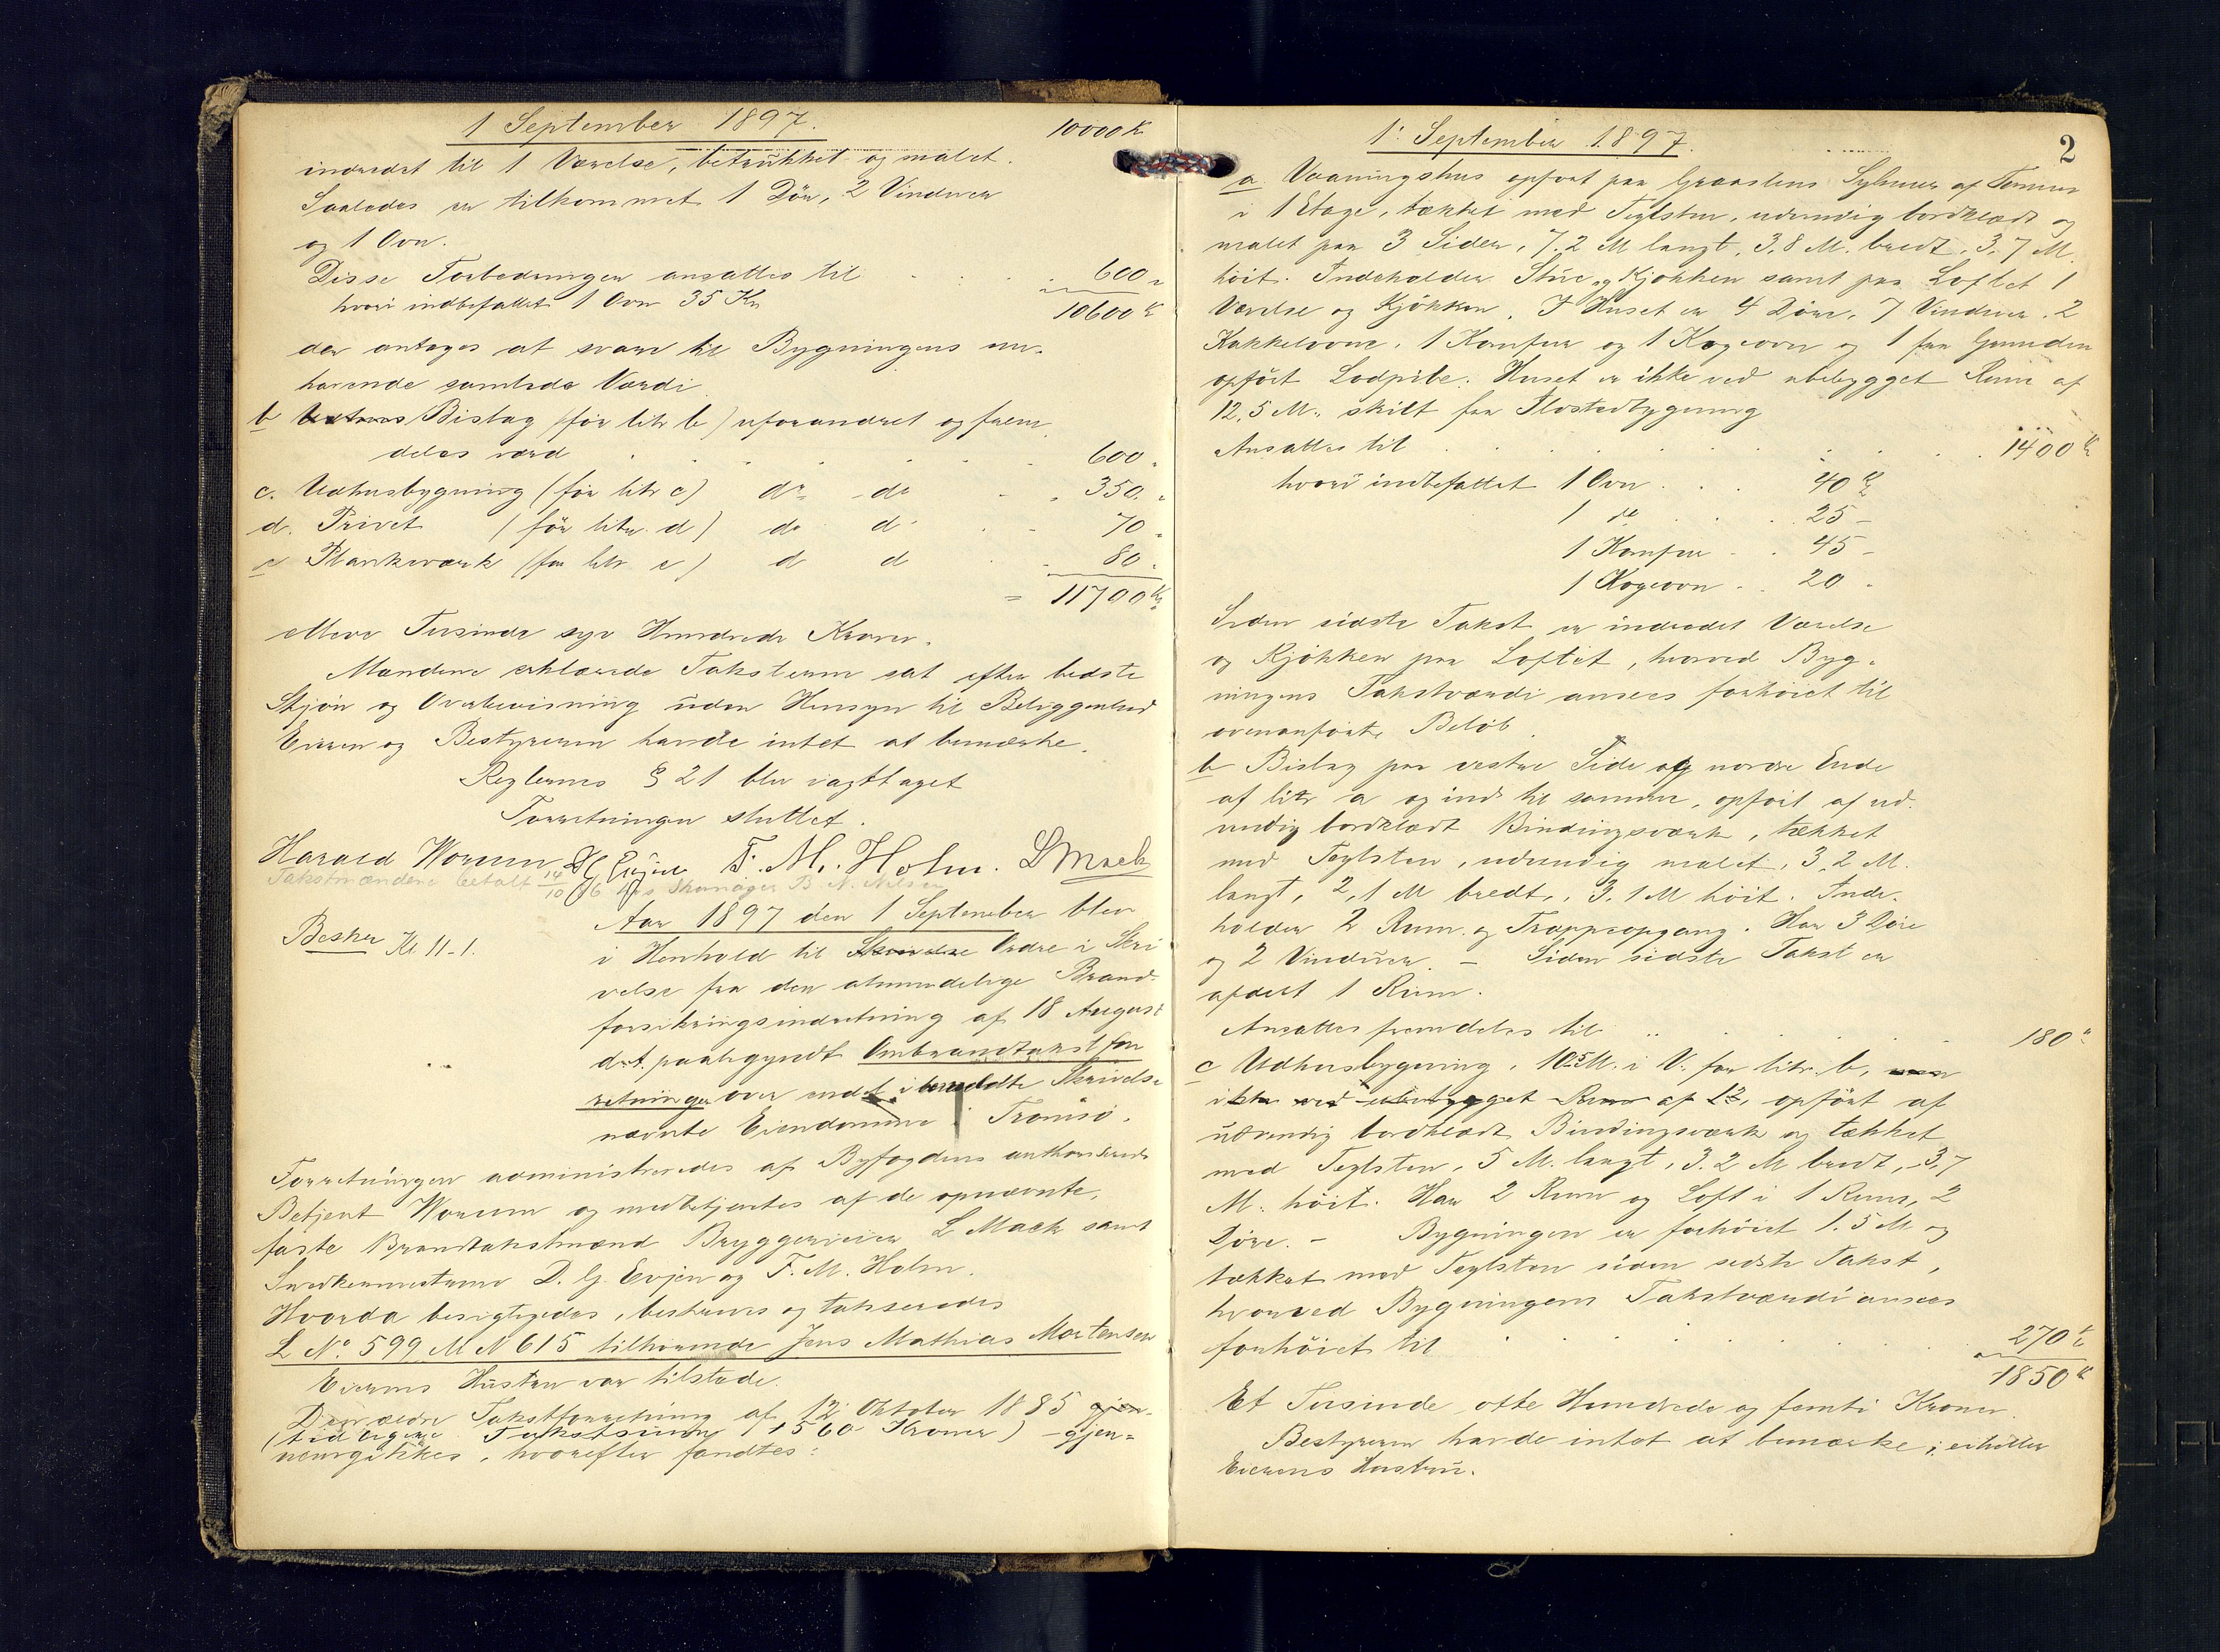 1 September 1897.
10000 Kr
indredet til 1 Værelse, betrukket og malet.
Saaledes er tilkommet 1 Dör, 2 Vinduer
og 1 Ovn.
Disse Forbedringer ansattes til . . . 600 "
hvori indbefattet 1 Ovn 35 Kr
10600 Kr
der antages at svare til Bygningens nu-
havende samlede Værdi
b Bislag (för litr b) uforandret og frem
deles værd . . . . . . . 600 "
c. Udhusbygning (för litr c) do do - - 350. "
d. Privet (för litr. d) do d - - 70 "
e Plankeværk (för litr e) d d - - 80 "
= 11700 Kr
elleve Tusinde syv Hundrede Kroner.
Mændene erklærede Taksterne sat efter bedste
Skjön og Overbevisning uden Hensyn til Beliggenhed
Eieren og Bestyreren havde intet at bemærke.
Reglernes § 21 blev iagttaget
Forretningen sluttet.
Harald Worum D G Evjen F. M. Holm. L Mack
Takstmændene betalt 14/10 96
Besker Kl 11-1.
Aar 1897 den 1 September blev
i Henhold til Skrivelse Ordre i Skri
velse fra den almindelige Brand-
forsikringsindretning af 18 August
d.A. paabegyndt Ombrandtakstfor
retninger over endel i bemeldte Skrivelse
nævnte Eiendomme i Tromsö.
Forretningen administreredes af Byfogdens authoriserede
Betjent Worum og medbetjentes af de opnævnte,
faste Brandtakstmænd Bryggerieier L Mack samt
Snedkermestrene D. G. Evjen og F. M. Holm.
Hvorda besigtigedes, beskreves og takseredes
L No. 599 M N 615 tilhörende Jens Mathias Mortensen
Eierens Hustru var tilstede.
Den ældre Takstforretning af 12 Oktober 1885 gjen-
(tidligere Takstsum 1560 Kroner) - gjen-
nemgikkes, hvorefter fandtes:
1. September 1897.
2
a. Vaaningshus opfört paa Graastens Sylmur af Tömmer
i 1 Etage, tækket med Teglsten, udvendig bordklædt og
malet paa 3 Sider, 7.2 M langt, 3.8 M. bredt, 3.7 M.
höit. Indeholder Stue og Kjökken samt paa Loftet 1
Værelse og Kjökken. I Huset er 4 Döre, 7 Vinduer, 2
Kakkelovne, 1 Komfur og 1 Kogeovn og 1 fra Grunden
opfört Lodpibe. Huset er ikke ved ubebygget Rum af
12.5 M. skilt fra Alostedbygning
Ansattes til . . . . . . . . . 1400 Kr
hvori indbefattet 1 Ovn . . . 40 Kr
1 do . . . 25 -
1 Komfur - . 45 -
1 Kogeovn - . 20 -
Siden sidste Takst er indredet Værelse
og Kjökken paa Loftet, hvorved Byg-
ningens Takstværdi ansees forhöiet til
ovenanförte Belöb.
b Bislag paa vestre Side og nordre Ende
af litr a og ind til samme, opfört af ud-
vendig bordklædt Bindingsværk, tækket
med Teglsten, udvendig malet, 3.2 M.
langt, 2.1 M bredt, 3.1 M höit. Inde-
holder 2 Rum og Trappeopgang. Har 3 Döre
og 2 Vinduer. - Siden sidste Takst er
afdelt 1 Rum.
Ansættes fremdeles til . . . . . 180 "
c Udhusbygning, 10.5 M. i V. for litr. b, men
ikke ved ubebygget Rum af L2, opfört af
udvendig bordklædt Bindingsværk og tækket
med Teglsten, 5 M. langt, 3.2 M bredt, 3.7
M. höit. Har 2 Rum og Loft i 1 Rum, 2
Döre. - Bygningen er forhöiet 1.5 M. og
tækket med Teglsten siden sidste Takst,
hvorved Bygningens Takstværdi ansees
forhöiet til . . . . . . . . 270 Kr
1850 Kr
Et Tusinde otte Hundrede og femti Kroner.
Bestyreren havde intet at bemærke; eiheller
Eierens Hustru.